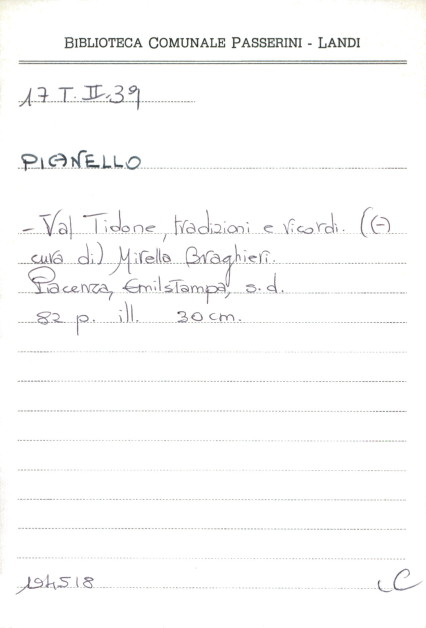 BIBLIOTECA COMUNALE PASSERINI - LANDI
17 T. II. 39
PIANELLO
- Val Tidone, tradizioni e ricordi. (A
cura di) Mirella Braghieri.
Piacenza, Emilstampa, s.d.
82 p. ill. 30 cm.
194518